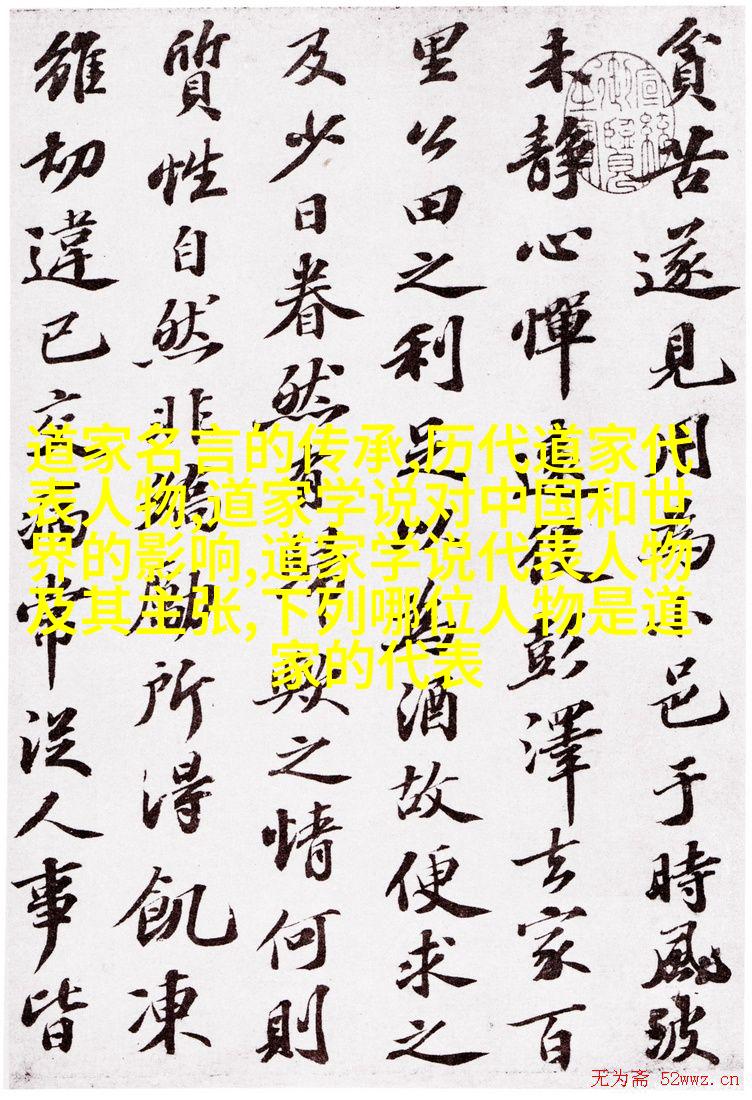 貧苦遂見用為小邑于時風波
未靜心憚遠役彭澤去家百
里公田之利足以為酒故便求之
及少日眷然有歸歟之情何則
質性自然非矯勵所得飢凍
雖切違已交病常從人事皆
道家名言的传承,历代道家代
表人物,道家学说对中国和世
界的影响,道家学说代表人物
及其主张,下列哪位人物是道
家的代表
无为斋 52wwz.cn